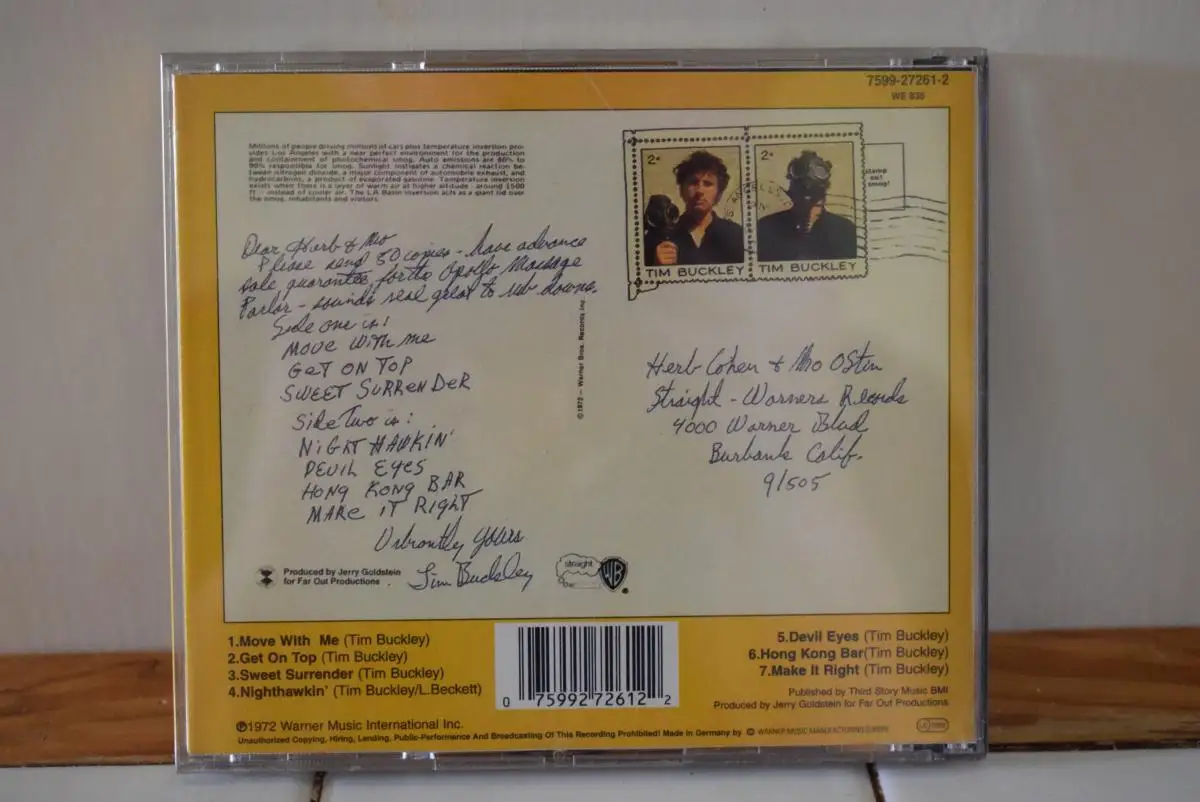 7599-27261-2
WE 835
Millions of people driving millions of cars plus temperature inversion pro-
vides Los Angeles with a near perfect environment for the production
and containment of photochemical smog. Auto emissions are 80% to
90% responsible for smog. Sunlight instigates a chemical reaction be-
tween nitrogen dioxide, a major component of automobile exhaust, and
hydrocarbons, a product of evaporated gasoline. Temperature inversion
exists when there is a layer of warm air at higher altitude - around 1500
ft - instead of cooler air. The L.A. Basin inversion acts as a giant lid over
the smog, inhabitants and visitors.
2¢
2¢
stamp
out
smog!
TIM BUCKLEY
TIM BUCKLEY
Dear Herb & Mo
Please send 50 copies - have advance
sale guarantee for the Apollo Massage
Parlor - sounds real great to rub downs.
Side one is:
MOVE WITH ME
GET ON TOP
SWEET SURRENDER
Side Two is:
NIGHT HAWKIN'
DEVIL EYES
HONG KONG BAR
MAKE IT RIGHT
Vibrantly yours
Tim Buckley
©1972 — Warner Bros. Records Inc.
Herb Cohen & Mo Ostin
Straight - Warners Records
4000 Warner Blvd
Burbank Calif.
91505
Produced by Jerry Goldstein
for Far Out Productions
straight
WB
1.Move With Me (Tim Buckley)
2.Get On Top (Tim Buckley)
3.Sweet Surrender (Tim Buckley)
4.Nighthawkin' (Tim Buckley/L.Beckett)
0 75992 72612 2
5.Devil Eyes (Tim Buckley)
6.Hong Kong Bar(Tim Buckley)
7.Make It Right (Tim Buckley)
Published by Third Story Music BMI
Produced by Jerry Goldstein for Far Out Productions
℗1972 Warner Music International Inc.
Unauthorized Copying, Hiring, Lending, Public-Performance And Broadcasting Of This Recording Prohibited! Made in Germany by WARNER MUSIC MANUFACTURING EUROPE